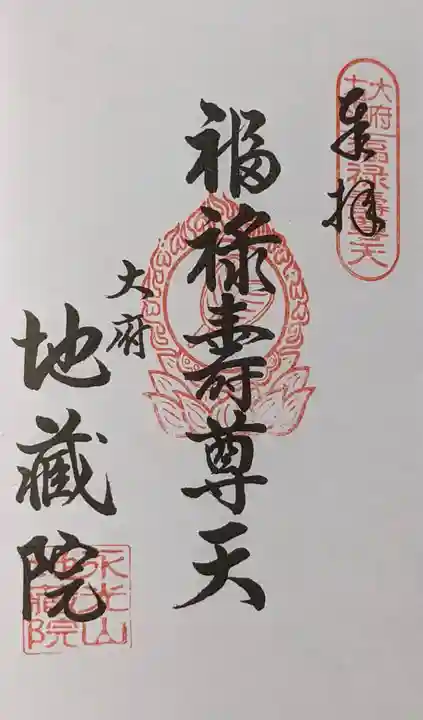 奉拝
大府七福禄壽尊天
福禄壽尊天
大府
地蔵院
永光山
地蔵院